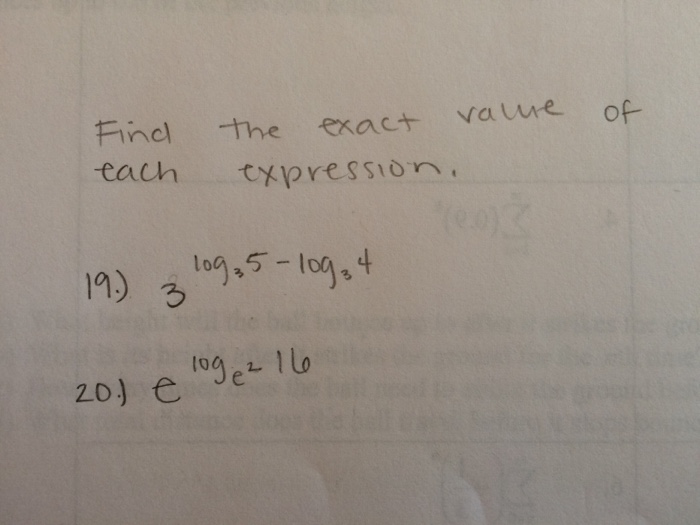 Find the exact value of
each expression.
19.) 3^{log₃5 - log₃4}
20.) e^{log_{e²}16}